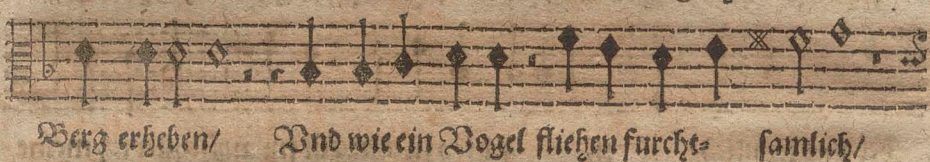 Berg erheben/ Vnd wie ein Vogel fliehen furcht⸗ samlich/